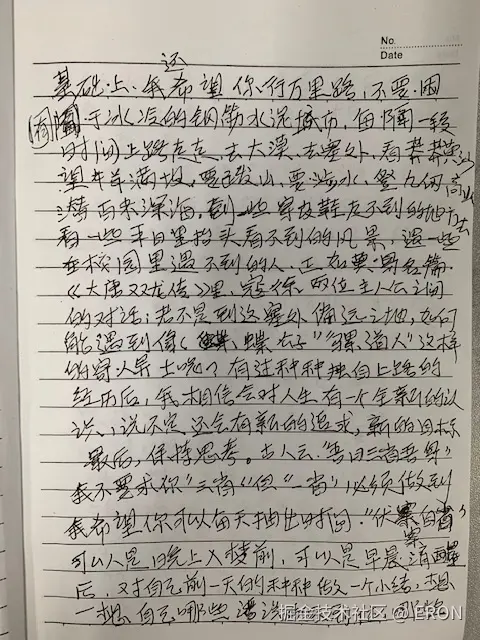 No.
Date
还
基础上,我希望你行万里路,不要困
囿于冰冷的钢筋水泥城市,每隔一段
时间上路走走,去大漠、去塞外,看莽莽黄沙
望牛羊满坡,要跋山,要涉水,登九仞高山
潜百米深海,到一些穷发鞋皮不到的地方去
看一些平日里抬头看不到的风景,遇一些
在校园里遇不到的人。正如黄易名篇
《大唐双龙传》里,寇徐两位主人公之间
的对话:若不是到这塞外偏远之地,如何
能遇到像蝶公子""骡道人"这样
的奇人异士呢?有过种种独自上路的
经历后,我相信会对人生有一个全新的认
识,说不定还会有新的追求,新的目标
最后,保持思考。古人云"吾日三省吾身"
我不要求你"三省"但"一省"必须做到
我希望你可以每天抽出时间"伏案自省"
案
可以是晚上入睡前,可以是早晨清醒
后,对自己前一天的种种做一个小结,想
一想自己哪些
掘金技术社区 @ ERON